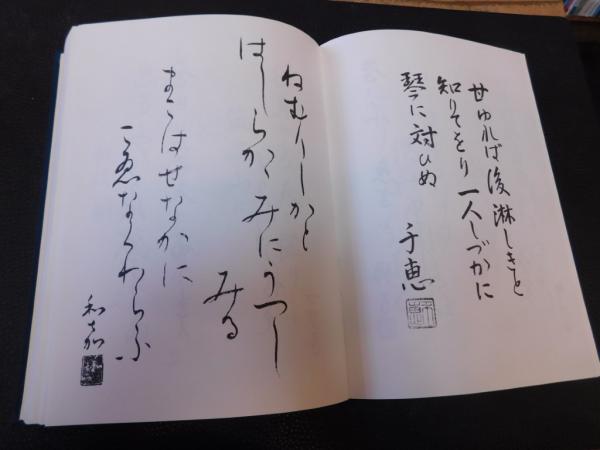 甘ゆれば後淋しきと
知りてをり一人しづかに
琴に対ひぬ
千恵
ねむりしかと
はしらかゞみにうつし
みる
まごはせなかに
こゑなくわらふ
和加